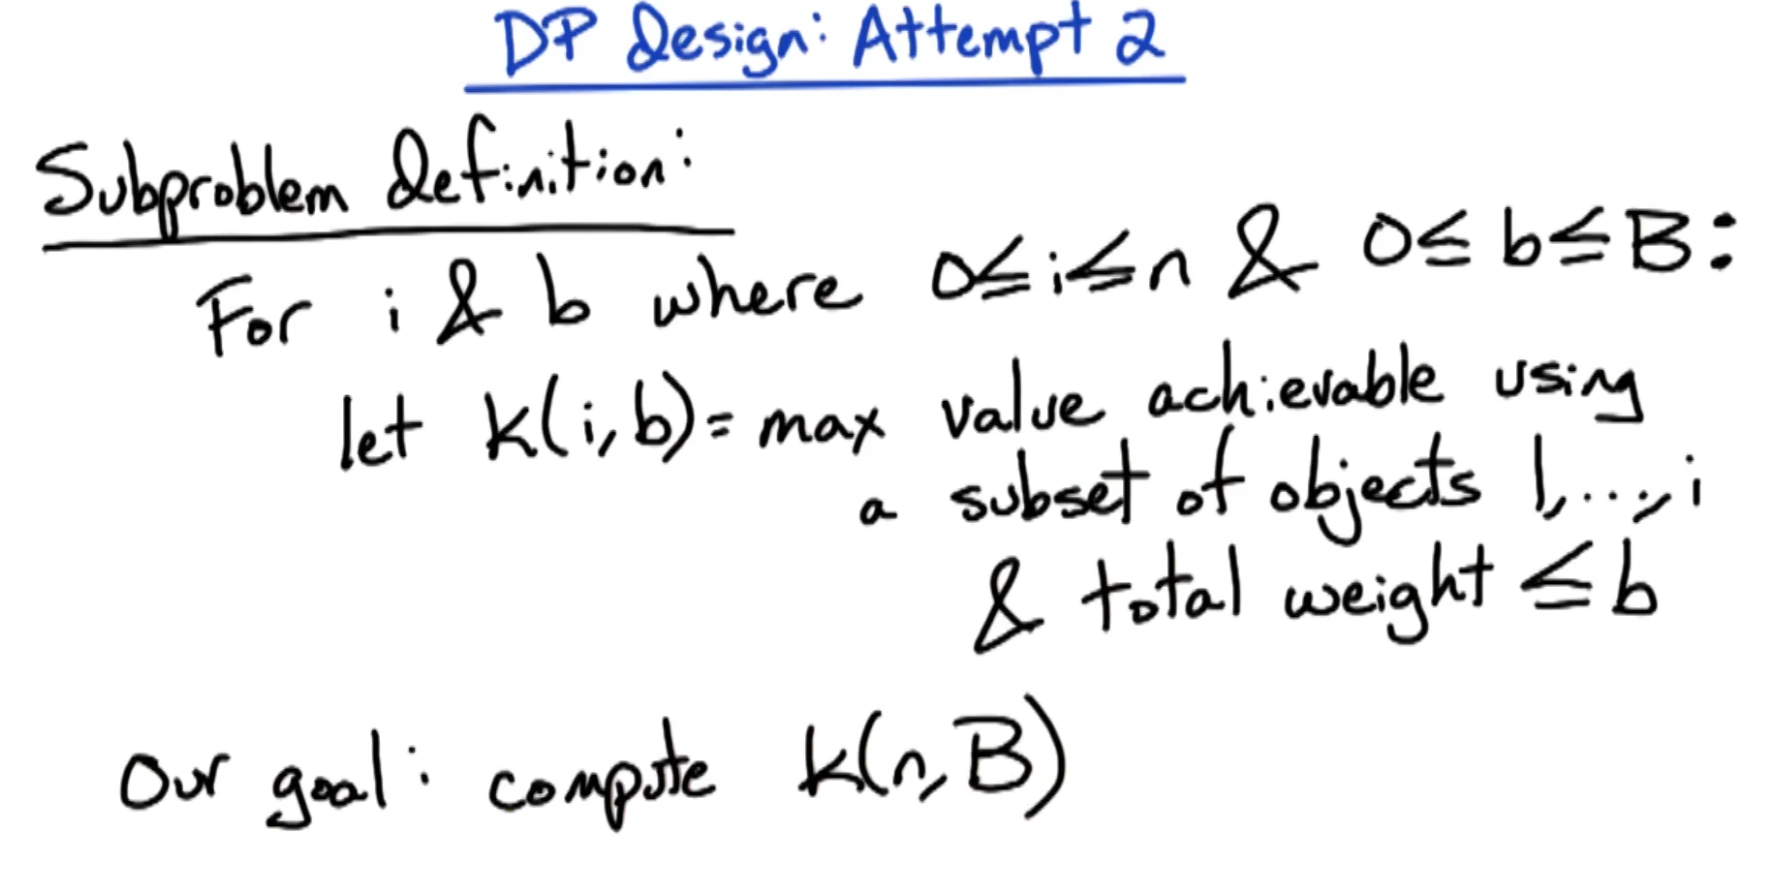 DP Design: Attempt 2
Subproblem definition:
For i & b where 0≤i≤n & 0≤b≤B:
let K(i,b)= max value achievable using
a subset of objects 1,...,i
& total weight ≤b
Our goal: compute K(n,B)